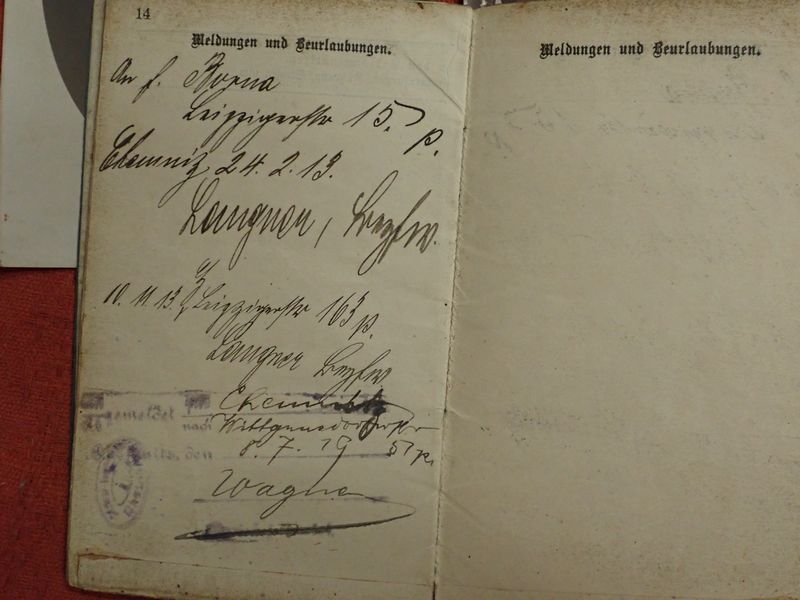 14
Meldungen und Beurlaubungen.
An f. Borna
Leipzigerstr 15. p.
Chemnitz 24. 2. 13.
Langner, Bezfw.
10. 11. 13. Leipzigerstr 163 p.
Langner Bezfw
gemeldet
Chemnitz
nach Wittgensdorferstr
Chemnitz, den 8. 7. 19 51 p.
Wagner
Meldungen und Beurlaubungen.